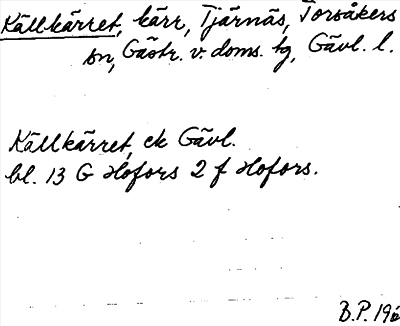 Källkärret, kärr, Tjärnäs, Torsåkers
sn, Gästr. v. doms. tg, Gävl. l.
Källkärret, ek Gävl.
bl. 13 G Hofors 2 f Hofors.
B.P. 19